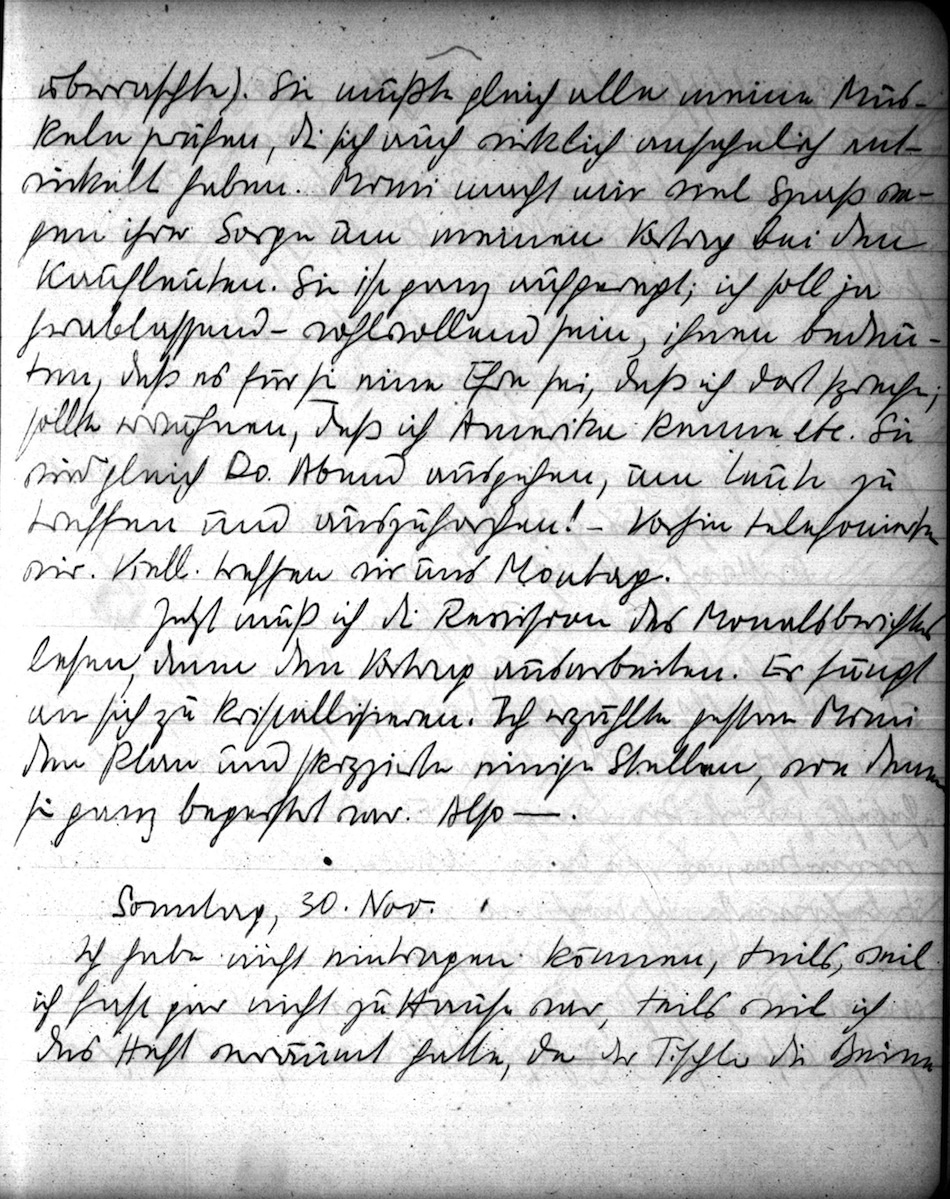 überraschte). Sie mußte gleich alle meine Mus-
keln prüfen, die sich auch wirklich ansehnlich ent-
wickelt haben. Mimi macht mir viel Spaß we-
gen ihrer Sorge um meinen Vortrag bei den
Kaufleuten. Sie ist ganz aufgeregt; ich soll ja
herablassend-wohlwollend sein, ihnen bedeu-
ten, daß es für sie eine Ehre sei, daß ich dort spreche;
sollte erwähnen, daß ich Amerika kenne etc. Sie
wird gleich Do. Abend ausgehen, um Leute zu
treffen und auszuhorchen! – Vorhin telefonierten
wir. Viell. treffen wir uns Montag.
Jetzt muß ich die Revision des Monatsberichtes
lesen, dann den Vortrag ausarbeiten. Er fängt
an sich zu kristallisieren. Ich erzählte gestern Mimi
den Plan und skizzierte einige Stellen, von denen
sie ganz begeistert war. Also —.
Sonntag, 30. Nov.
Ich habe nicht eintragen können, teils, weil
ich fast gar nicht zu Hause war, teils weil ich
das Heft verräumt hatte, da der Tischler die